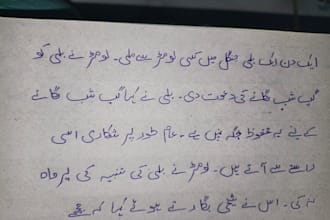 ایک دن ایک بلی جنگل میں کسی لومڑ سے ملی۔ لومڑ نے بلی کو
گپ شپ لگانے کی دعوت دی۔ بلی نے کہا گپ شپ لگانے
کے لیے یہ محفوظ جگہ نہیں ہے۔ عام طور پر شکاری اسی
راستے سے آتے ہیں۔ لومڑ نے بلی کی تنبیہ کی پرواہ
نہ کی۔ اس نے شیخی بگارتے ہوئے کہا کہ مجھے